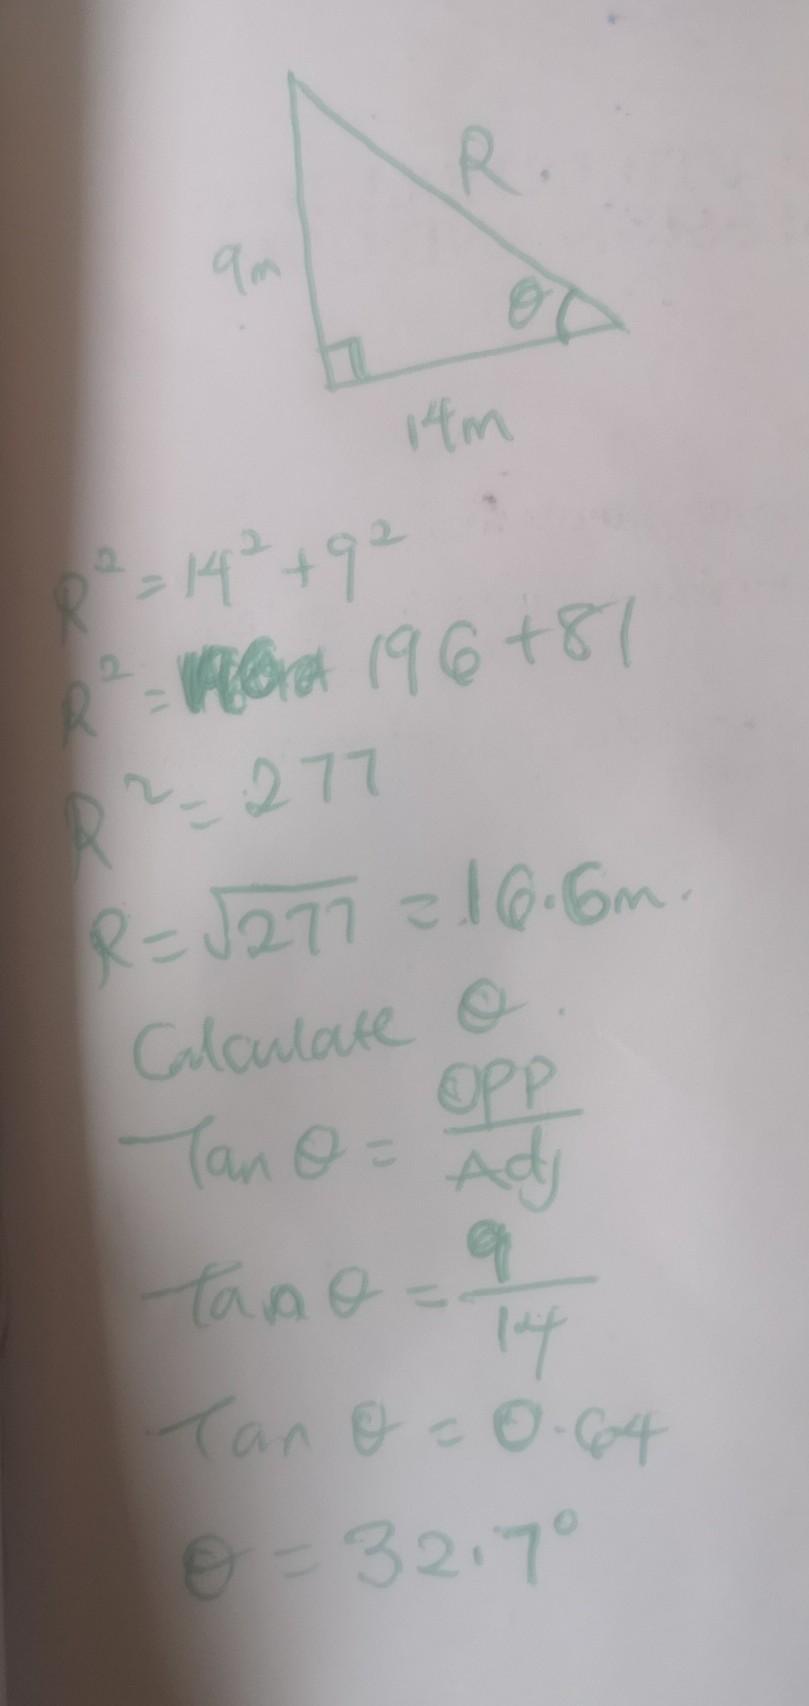 R
9m
θ
14m
R² = 14² + 9²
R² = 196 + 81
R² = 277
R = √277 = 16.6m.
Calculate θ.
Tan θ = OPP/Adj
Tan θ = 9/14
Tan θ = 0.64
θ = 32.7°